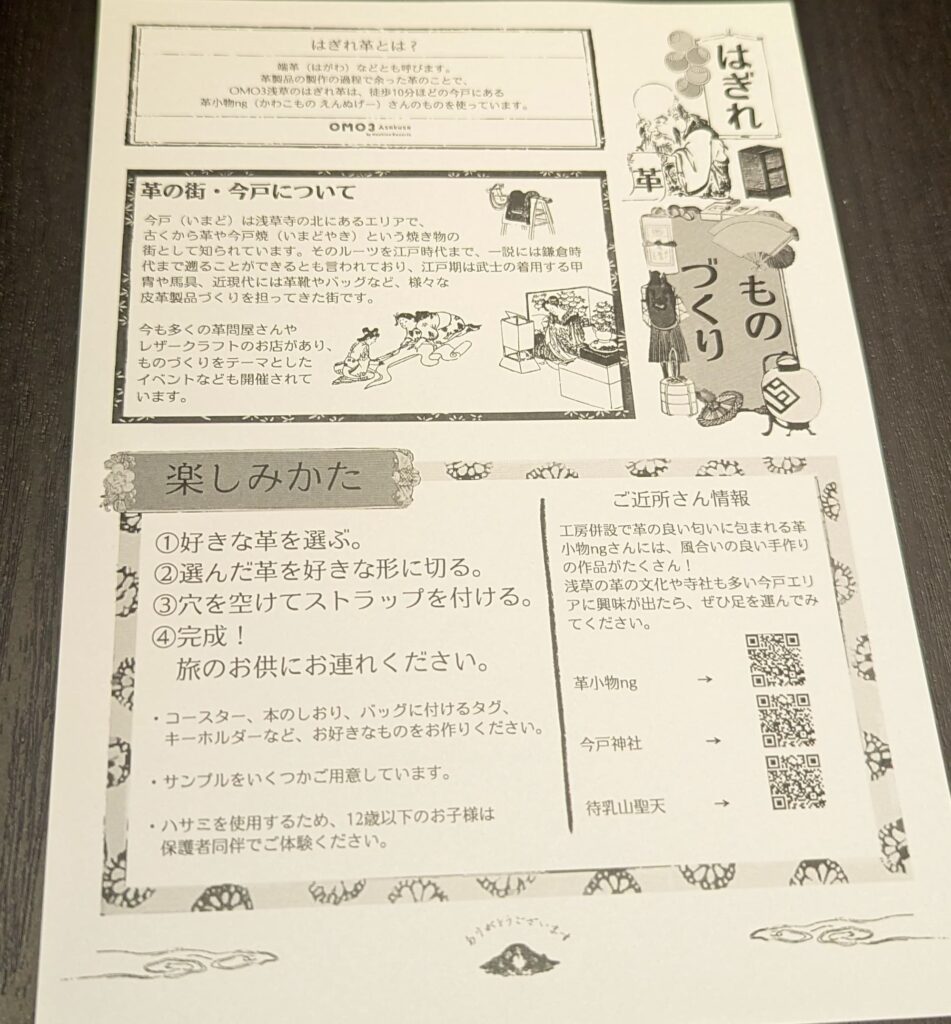 はぎれ
革
ものづくり
はぎれ革とは？
端革（はがわ）などとも呼びます。
革製品の製作の過程で余った革のことで、
OMO3浅草のはぎれ革は、徒歩10分ほどの今戸にある
革小物ng（かわこもの えんぬげー）さんのものを使っています。
OMO3 Asakusa
by Hoshino Resorts
革の街・今戸について
今戸（いまど）は浅草寺の北にあるエリアで、
古くから革や今戸焼（いまどやき）という焼き物の
街として知られています。そのルーツを江戸時代まで、一説には鎌倉時
代まで遡ることができるとも言われており、江戸期は武士の着用する甲
冑や馬具、近現代には革靴やバッグなど、様々な
皮革製品づくりを担ってきた街です。
今も多くの革問屋さんや
レザークラフトのお店があり、
ものづくりをテーマとした
イベントなども開催されて
います。
楽しみかた
①好きな革を選ぶ。
②選んだ革を好きな形に切る。
③穴を空けてストラップを付ける。
④完成！
旅のお供にお連れください。
・コースター、本のしおり、バッグに付けるタグ、
キーホルダーなど、お好きなものをお作りください。
・サンプルをいくつかご用意しています。
・ハサミを使用するため、12歳以下のお子様は
保護者同伴でご体験ください。
ご近所さん情報
工房併設で革の良い匂いに包まれる革
小物ngさんには、風合いの良い手作り
の作品がたくさん！
浅草の革の文化や寺社も多い今戸エリ
アに興味が出たら、ぜひ足を運んでみ
てください。
革小物ng →
今戸神社 →
待乳山聖天 →
ありがとうございます